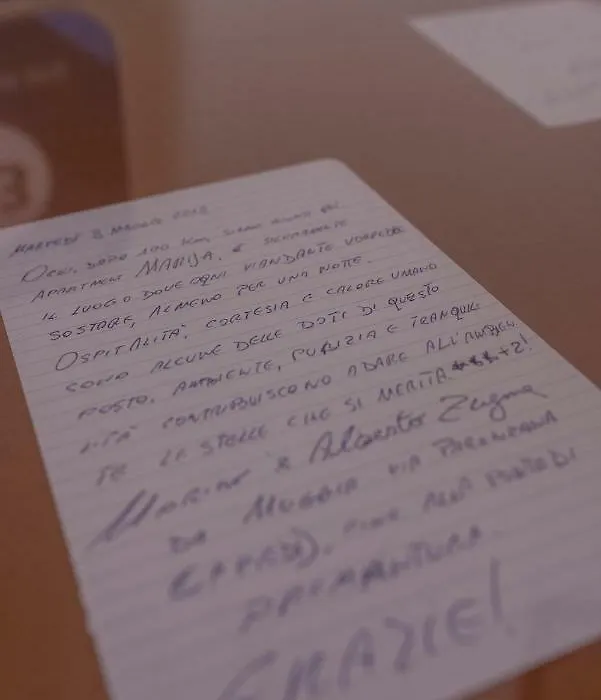 MARTEDÌ 8 MAGGIO
OGGI, DOPO 100 KM, SIAMO
APARTMENT MARIJA, È SICURAMENTE
IL LUOGO DOVE OGNI VIANDANTE VORREBBE
SOSTARE, ALMENO PER UNA NOTTE.
OSPITALITÀ, CORTESIA E CALORE UMANO
SONO ALCUNE DELLE DOTI DI QUESTO
POSTO. AMBIENTE, PULIZIA E TRANQUIL-
LITÀ CONTRIBUISCONO A DARE ALL'AMBIEN-
TE LE STELLE CHE SI MERITA +2!
MARINO & Alberto
DA MUGGIA VIA PARENZANA
(A PIEDI), FINO ALLA PUNTA DI
PREMANTURA.
GRAZIE!
3